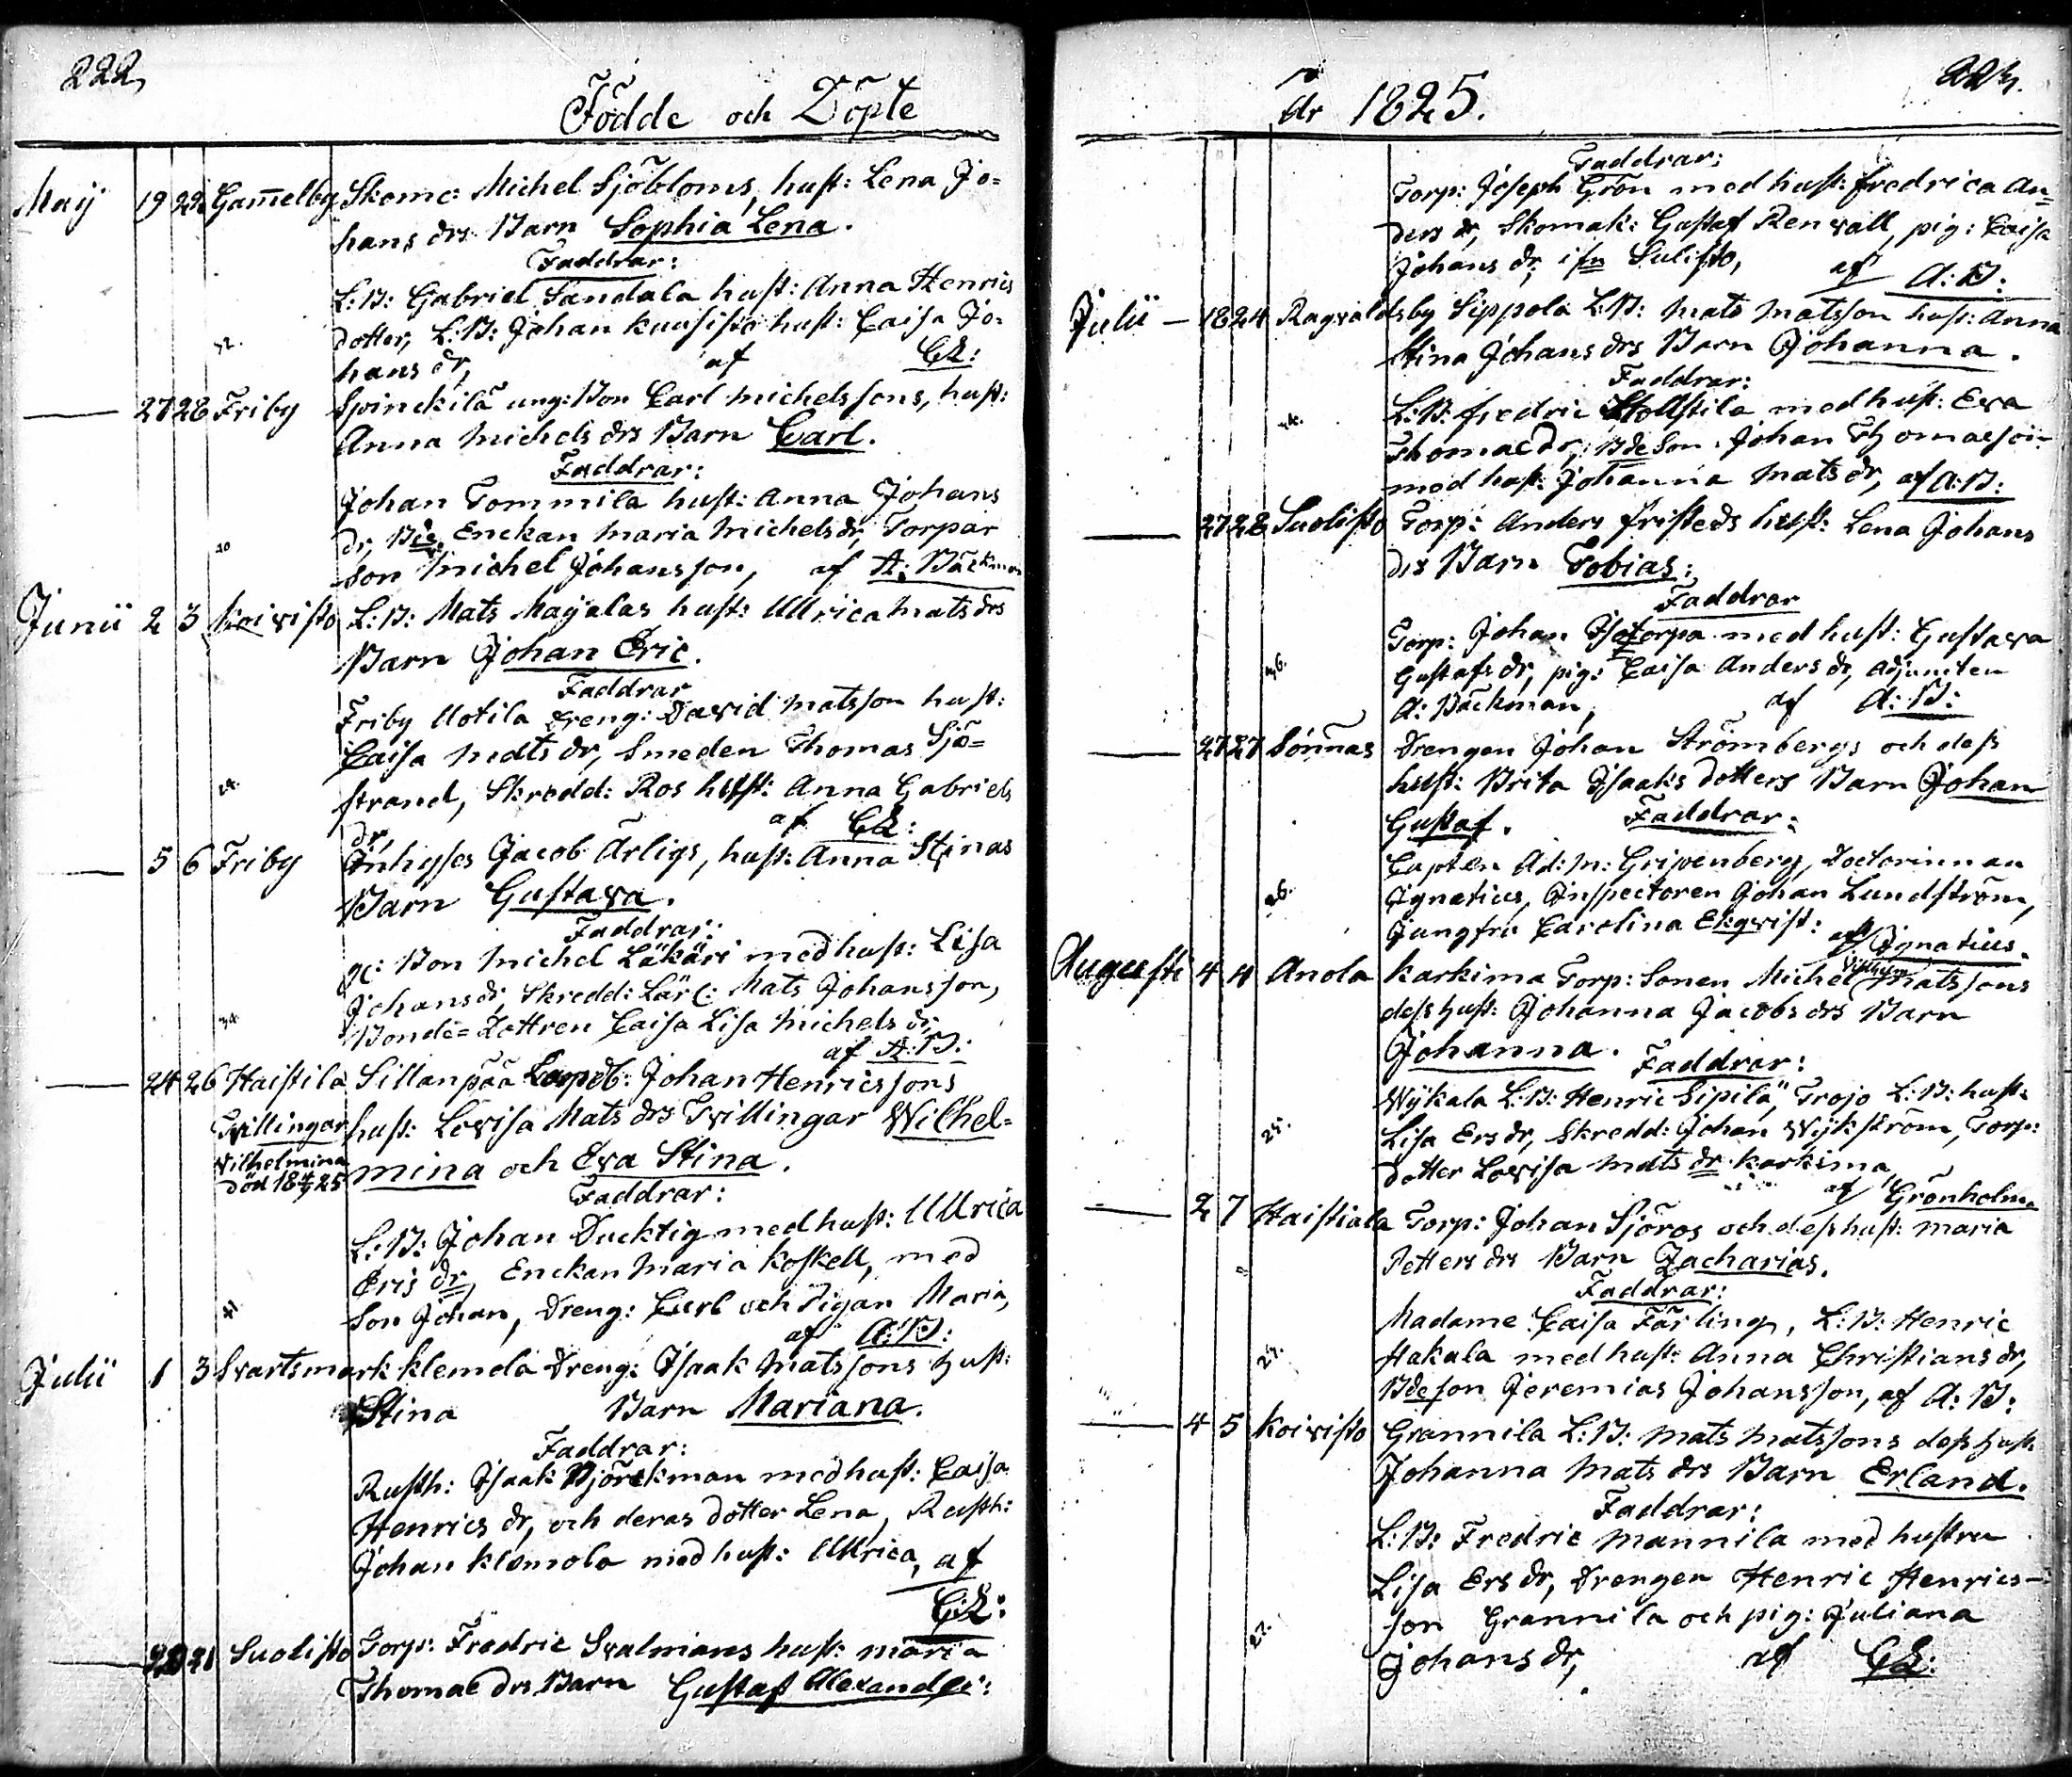 222,
Födde och Döpte
Maÿ 19 22 Gam̅elby Skome: Michel Sjöbloms, hust: Lena Jo=
hans drs Barn Sophia Lena.
Faddrar:
L:B: Gabriel Sandala hust: Anna Henrics
dotter, L:B: Johan Kuusisto hust: Caisa Jo=
32.
hans dr, af CL:
27 28 Friby Spinckilä ung: Bon Carl Michelssons, hust:
Anna Michels drs Barn Carl.
Faddrar:
Johan Tommila hust: Anna Johans
dr, Bde Enckan Maria Michels dr, Torpar
son Michel Johansson, af A: Bäckman
Junii 2 3 Koivisto L:B: Mats Maÿalas hust: Ullrica Mats drs
Barn Johan Eric.
Faddrar
Friby Uotila Dreng: David Matsson hust:
Caisa Mats dr, Smeden Thomas Sjö=
24.
strand, Skredd: Ros hust: Anna Gabriels
dr, af CL:
5 6 Friby Inhyses Jacob Ärligs, hust: Anna Stinas
Barn Gustava.
Faddrar:
gl: Bon Michel Läkäri med hust: Lisa
Johans dr, Skredd: Lärl: Mats Johansson,
34.
Bonde=Dottren Caisa Lisa Michels dr,
af A:B:
24 26 Haistila Sillanpää Johan Henricssons
Tvillingar hust: Lovisa Mats drs Tvillingar Wilhel=
Wilhelmina
död 18 25 mina och Eva Stina.
Faddrar:
L:B: Johan Ducktig med hust: Ullrica
Eris dr, Enckan Maria Koskell, med
Son Johan, Dreng: Carl och Pigan Maria,
af A:B:
Julii 1 3 Svartsmark Klemola Dreng: Isaak Matssons hust:
Stina Barn Mariana.
Faddrar:
Rusth: Isaak Björckman med hust: Caisa
Henrics dr, och deras dotter Lena, Rusth:
Johan Klemola med hust: Ullrica, af
CL:
21 Suolisto Torp: Fredric Svalmans hust: Maria
Thomae drs Barn Gustaf Alexander:
År 1825.
223.
Faddrar:
Torp: Joseph Grön med hust: Fredrica An=
ders dr, Skomak: Gustaf Renvall, pig: Caisa
Johans dr, ifrn Sulisto, af A:B:
Julii 18 24 Ragvaldsby Sippola L:B: Mats Matsson hust: Anna
Stina Johans drs Barn Johanna.
Faddrar:
L:B: Fredric Stollstila med hust: Eva
Thomae dr, Bde Son Johan Thomaeson
med hust: Johanna Mats dr, af A:B:
27 28 Suolisto Torp: Anders Fristeds hust: Lena Johans
drs Barn Tobias:
Faddrar
Torp: Johan Isotorpa med hust: Gustava
Gustafs dr, pig: Caisa Anders dr, Adjuncten
A: Bäckman, af A:B:
27 27 Sönnäs Drengen Johan Strömbergs och dess
hust: Brita Isaaks dotters Barn Johan
Gustaf. Faddrar:
Capten Ad: M: Gripenberg, Doctorinnan
26.
Ignatius, Inspectoren Johan Lundström,
Jungfru Carolina Ekqvist: af Ignatius.
Augusti 4 4 Anola Karkima Torp: Sonen Michel Vilhelm Matssons
dess hust: Johanna Jacobs drs Barn
Johanna. Faddrar:
Wÿkala L:B: Henric Sipilä, Trojo L:B: hust:
25.
Lisa Ers dr, Skredd: Johan Wÿkström, Torp:
dotter Lovisa Mats dr Karkima
af Grönholm
2 7 Haistiala Torp: Johan Sjöros och dess hust: Maria
Petters drs Barn Zacharias.
Faddrar:
Madame Caisa Färling, L:B: Henric
27.
Hakala med hust: Anna Christians dr,
Bdeson Jeremias Johansson, af A:B:
4 5 Koivisto Grannila L:B: Mats Matssons dess hust:
Johanna Mats drs Barn Erland.
Faddrar:
L:B: Fredric Mannila med hustru
Lisa Ers dr, Drengen Henric Henrics-
27.
son Grannila och pig: Juliana
Johans dr, af CL: